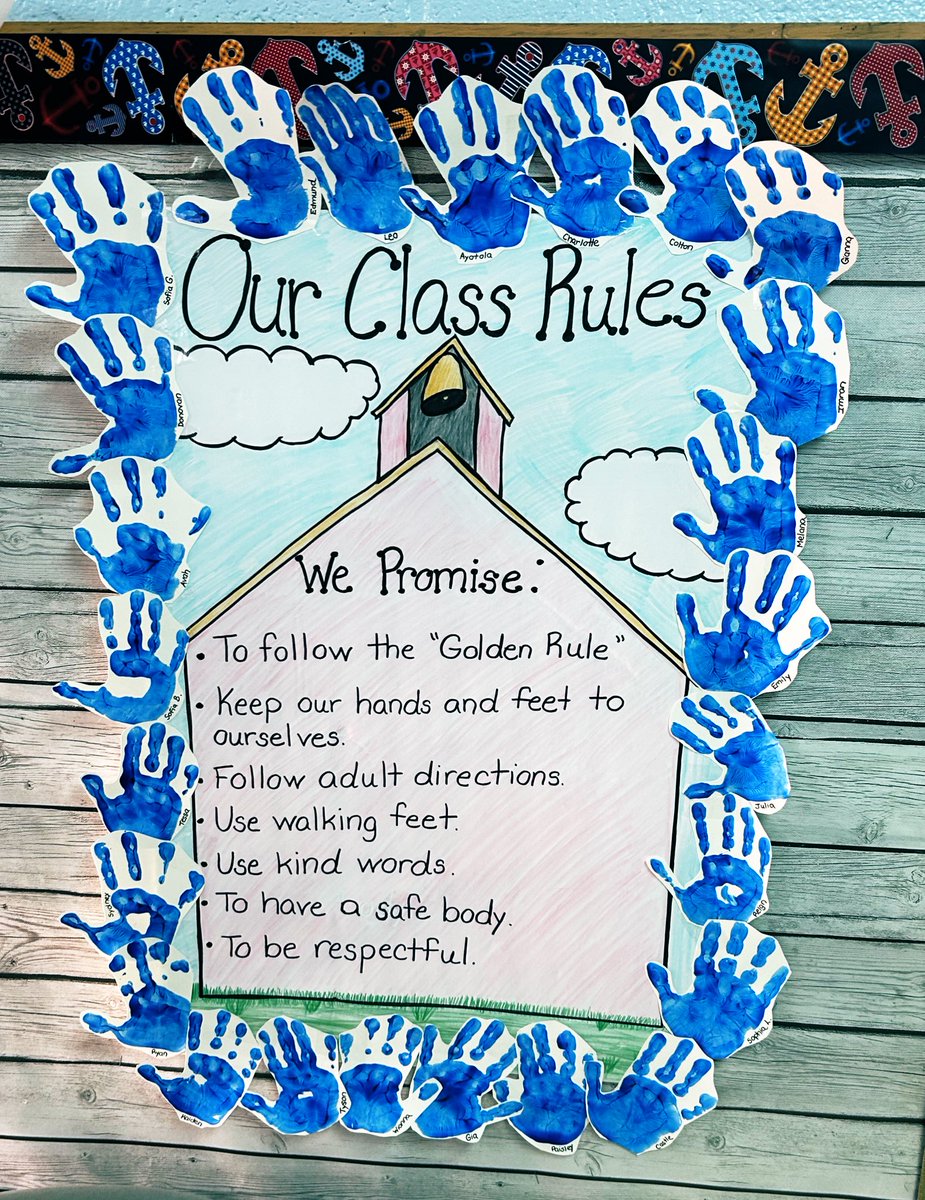 Our Class Rules
We Promise:
• To follow the "Golden Rule"
• Keep our hands and feet to
ourselves.
• Follow adult directions.
• Use walking feet.
• Use kind words.
• To have a safe body.
• To be respectful.
Edmund
Leo
Ayotola
Charlotte
Colton
Gianna
Imran
Melana
Emily
Julia
Reign
Sophia L.
Castle
Paisley
Gia
Tyson
Haiden
Ryan
Sydney
Tessa
Sofia B.
Avah
Donovan
Sofia G.